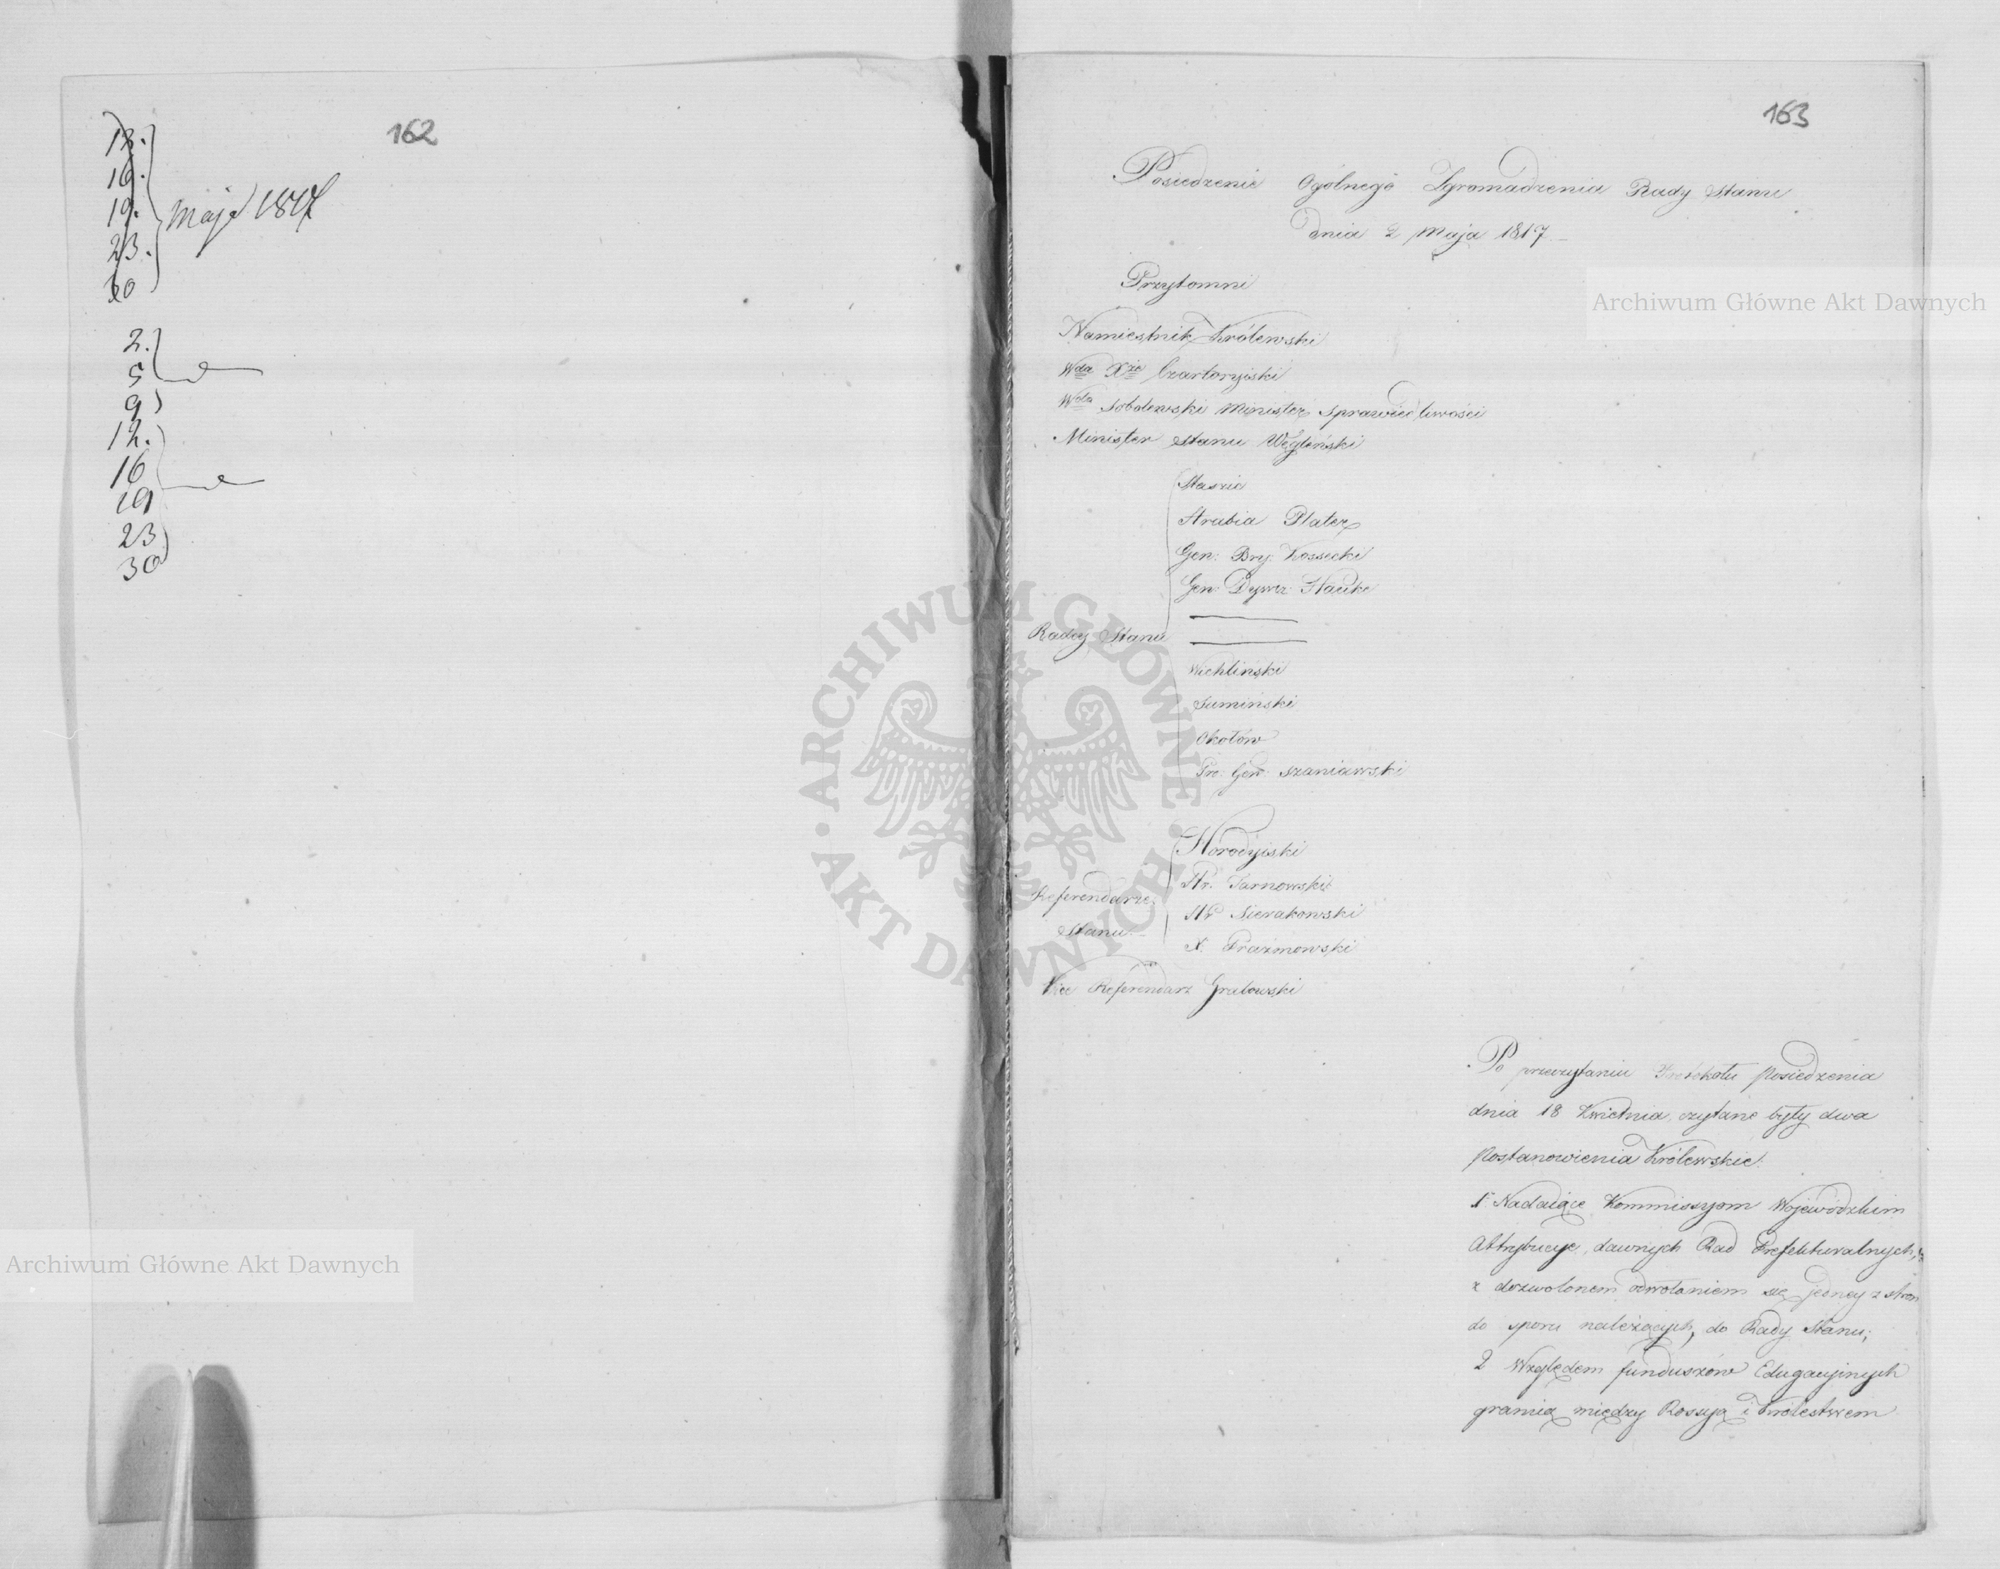 162
12.
16.
19.
23.
30
Maja 1817
2.
5
9
12.
16
19
23
30
163
Posiedzenie Ogólnego Zgromadzenia Rady Stanu
dnia 2 Maja 1817
Przytomni
Namiestnik Królewski
Wda Xże Czartoryiski
Wda Sobolewski Minister Sprawiedliwości
Minister Stanu Węgleński
Radcy Stanu
Staszic
Hrabia Plater
Gen: Bry: Kossecki
Gen: Dywiz: Hauke
Wichliński
Sumiński
Okołów
Pro: Gen: Szaniawski
Referendarze
Stanu
Horodyiski
Hr. Tarnowski
Hr Sierakowski
X. Prażmowski
Vice Referendarz Grabowski
Po przeczytaniu Protokołu posiedzenia
dnia 18 Kwietnia, czytane były dwa
Postanowienia Królewskie.
1. Nadaiące Kommissyom Woiewódzkim
Attrybucye, dawnych Rad Prefekturalnych,
z dozwolonem odwołaniem się jedney z stron
do sporu należących, do Rady Stanu;
2 Względem funduszów Edugacyinych
granicą między Rossyą i Królestwem
Archiwum Główne Akt Dawnych
Archiwum Główne Akt Dawnych
ARCHIWUM GŁÓWNE • AKT DAWNYCH •